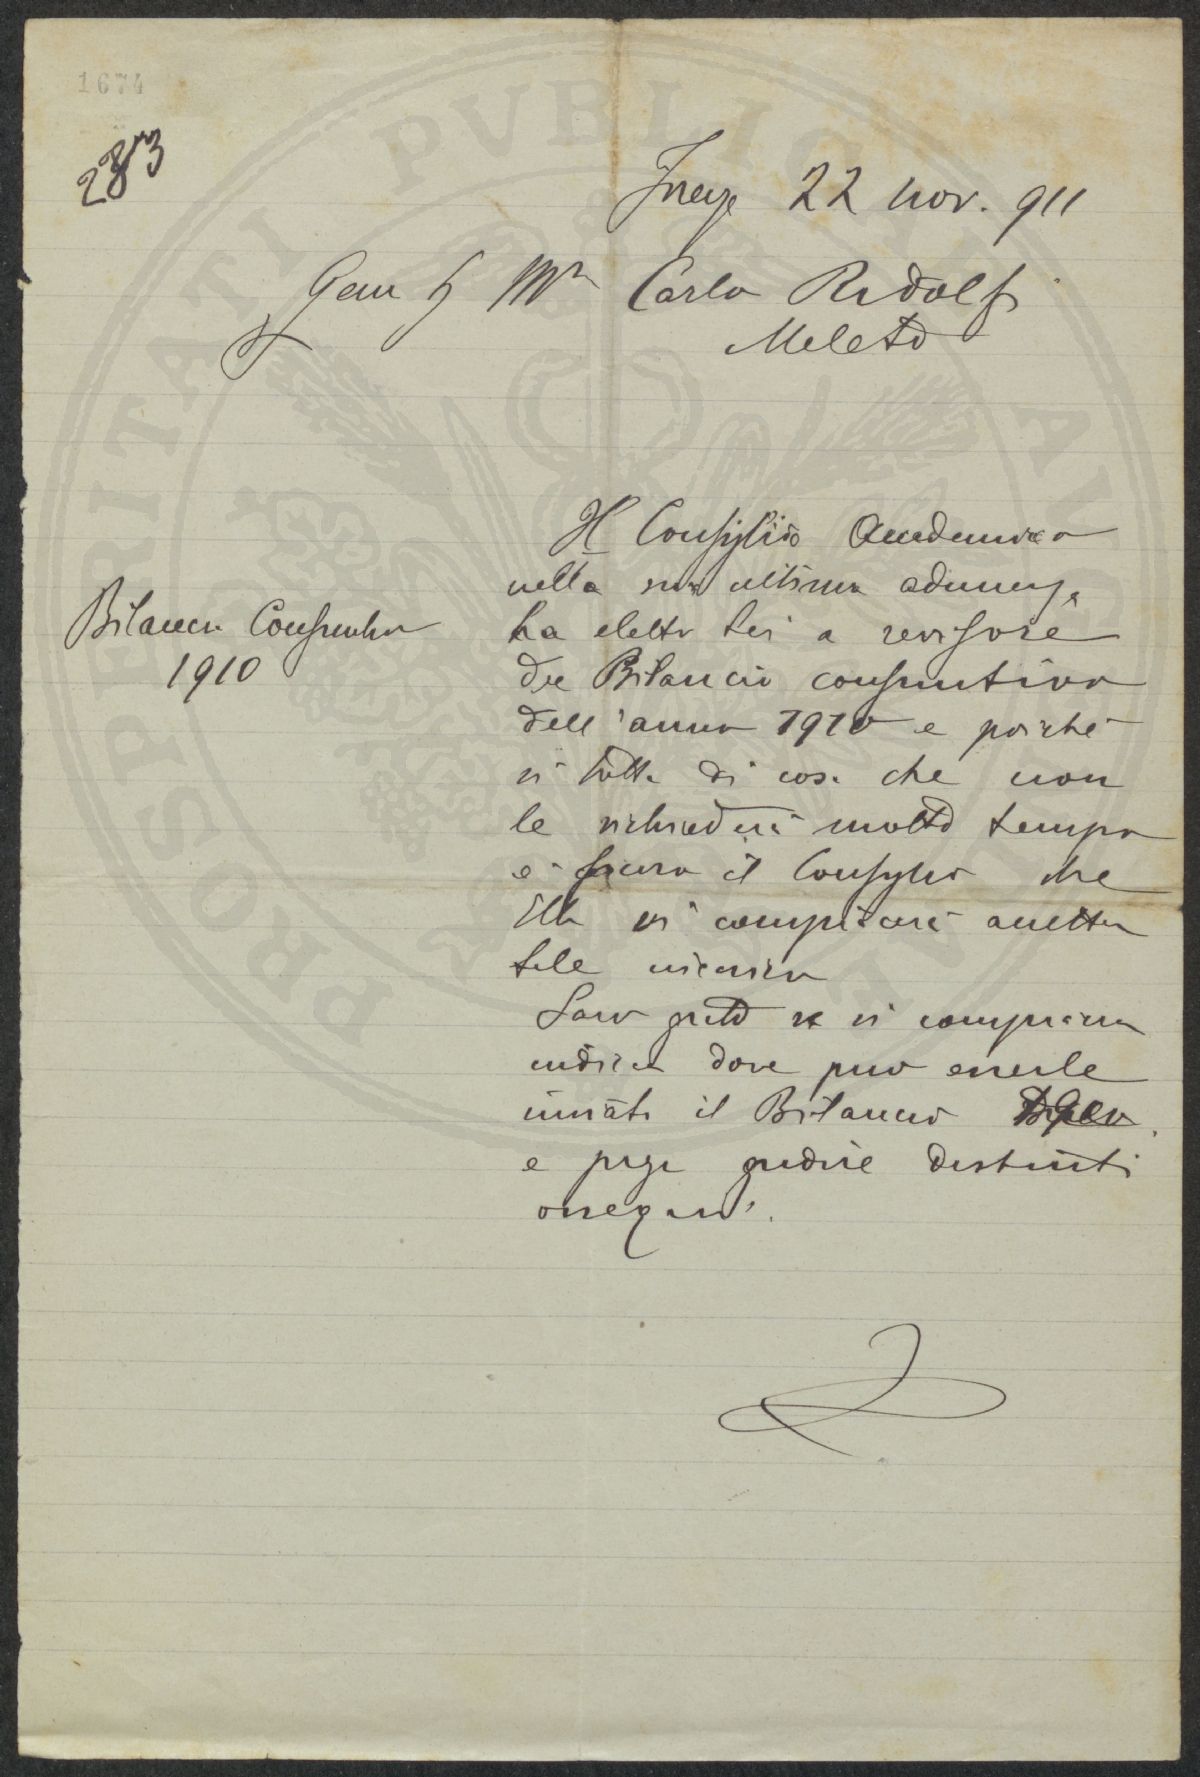 1674
283
Firenze 22 nov. 911
Carlo Ridolfi
Meleto
Bilancio Consuntivo
1910
Il Consiglio Accademico
nella sua ultima adunanza
ha eletto Lei a revisore
del Bilancio consuntivo
dell'anno 1910 e poiché
si tratta di cosa che non
le richiederà molto tempo
è sicuro il Consiglio che
Ella si compiacerà accettare
tale incarico
Sarò grato se si compiacerà
indicare dove può esserle
inviato il Bilancio
e prego gradire distinti
ossequi.
PROSPERITATI PVBLICAE AVGENDAE